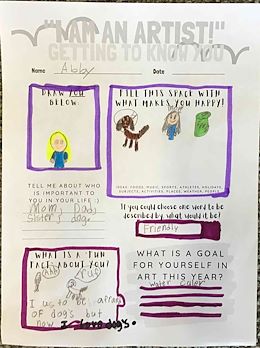 "I AM AN ARTIST!"
GETTING TO KNOW YOU
Name Abby Date
DRAW YOU
BELOW.
FILL THIS SPACE WITH
WHAT MAKES YOU HAPPY!
IDEAS: FOODS, MUSIC, SPORTS, ATHLETES, HOLIDAYS,
SUBJECTS, ACTIVITIES, PLACES, WEATHER, PEOPLE
TELL ME ABOUT WHO
IS IMPORTANT TO
YOU IN YOUR LIFE :)
Mom, Dad,
Sister, dog.
If you could choose one word to be
described by what would it be?
Friendly
WHAT IS A "FUN
FACT" ABOUT YOU?
Abby
I us to be afraid
of dogs but
now I love dogs.
WHAT IS A GOAL
FOR YOURSELF IN
ART THIS YEAR?
Water Culer